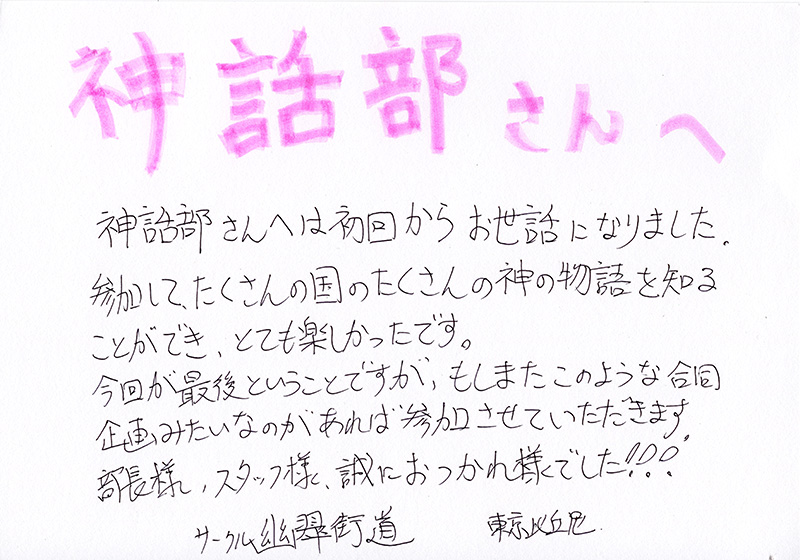 神話部さんへ
神話部さんへは初回からお世話になりました。
参加して、たくさんの国のたくさんの神の物語を知る
ことができ、とても楽しかったです。
今回が最後ということですが、もしまたこのような合同
企画みたいなのがあれば参加させていただきます。
部長様、スタッフ様、誠におつかれ様でした!!!
サークル幽翠街道 東京比丘尼